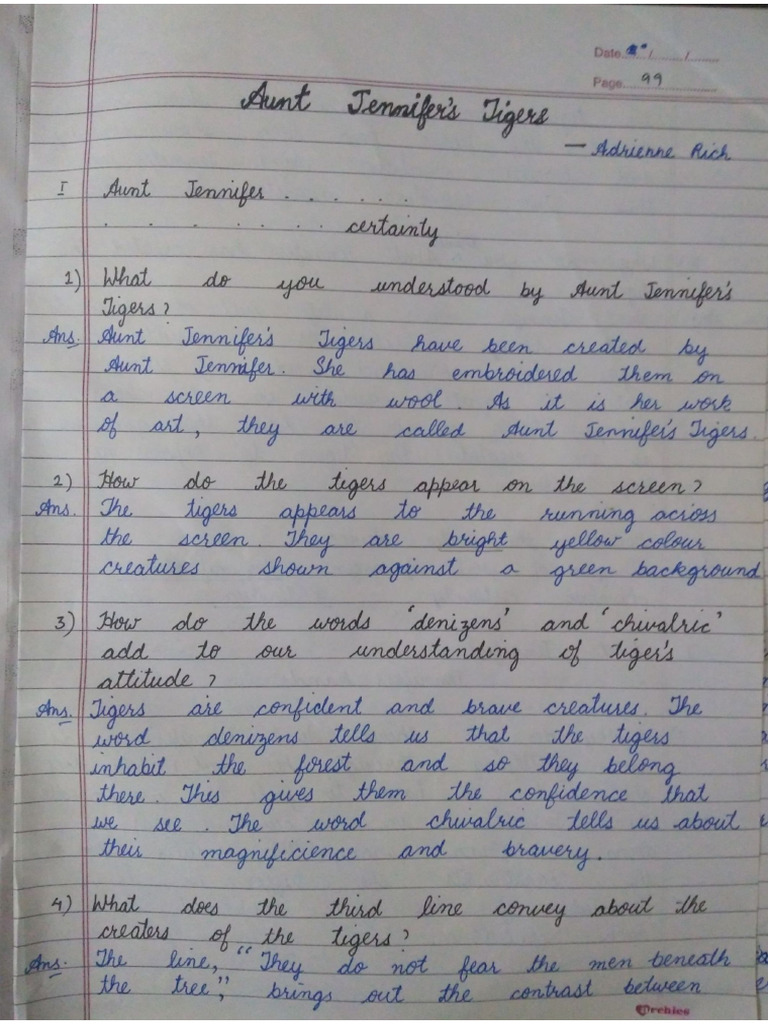 Date...../......./.......
Page....99..............
Aunt Jennifer's Tigers
— Adrienne Rich
I Aunt Jennifer . . . . . .
. . . . . . . . certainty
1) What do you understood by Aunt Jennifer's
Tigers?
Ans. Aunt Jennifer's Tigers have been created by
Aunt Jennifer. She has embroidered them on
a screen with wool. As it is her work
of art, they are called Aunt Jennifer's Tigers.
2) How do the tigers appear on the screen?
Ans. The tigers appears to the running across
the screen. They are bright yellow colour
creatures shown against a green background
3) How do the words 'denizens' and 'chivalric'
add to our understanding of tiger's
attitude?
Ans. Tigers are confident and brave creatures. The
word denizens tells us that the tigers
inhabit the forest and so they belong
there. This gives them the confidence that
we see. The word chivalric tells us about
their magnificience and bravery.
4) What does the third line convey about the
creaters of the tigers?
Ans. The line, "They do not fear the men beneath
the tree", brings out the contrast between
Archies